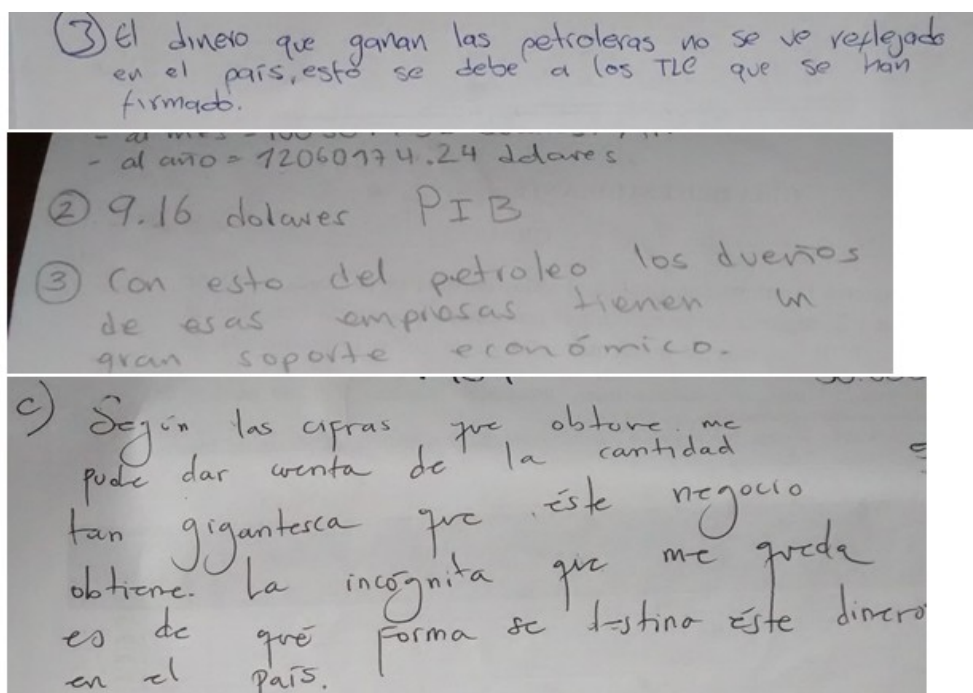 ③ El dinero que ganan las petroleras no se ve reflejado
en el país, esto se debe a los TLC que se han
firmado.
- al mes =
- al año = 12060174.24 dolares
② 9.16 dolares PIB
③ Con esto del petroleo los dueños
de esas empresas tienen un
gran soporte económico.
c) Según las cifras que obtuve me
pude dar cuenta de la cantidad
tan gigantesca que éste negocio
obtiene. La incógnita que me queda
es de qué forma se destina éste dinero
en el país.